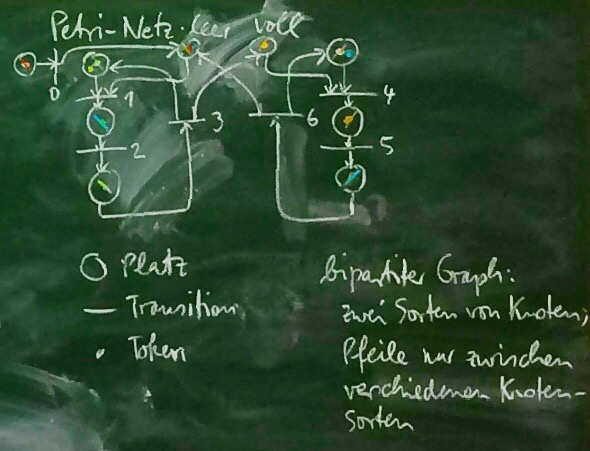 Petri-Netz: leer voll
0
1
2
3
6
4
5
Platz
Transition
Token
bipartiter Graph:
zwei Sorten von Knoten;
Pfeile nur zwischen
verschiedenen Knoten-
sorten